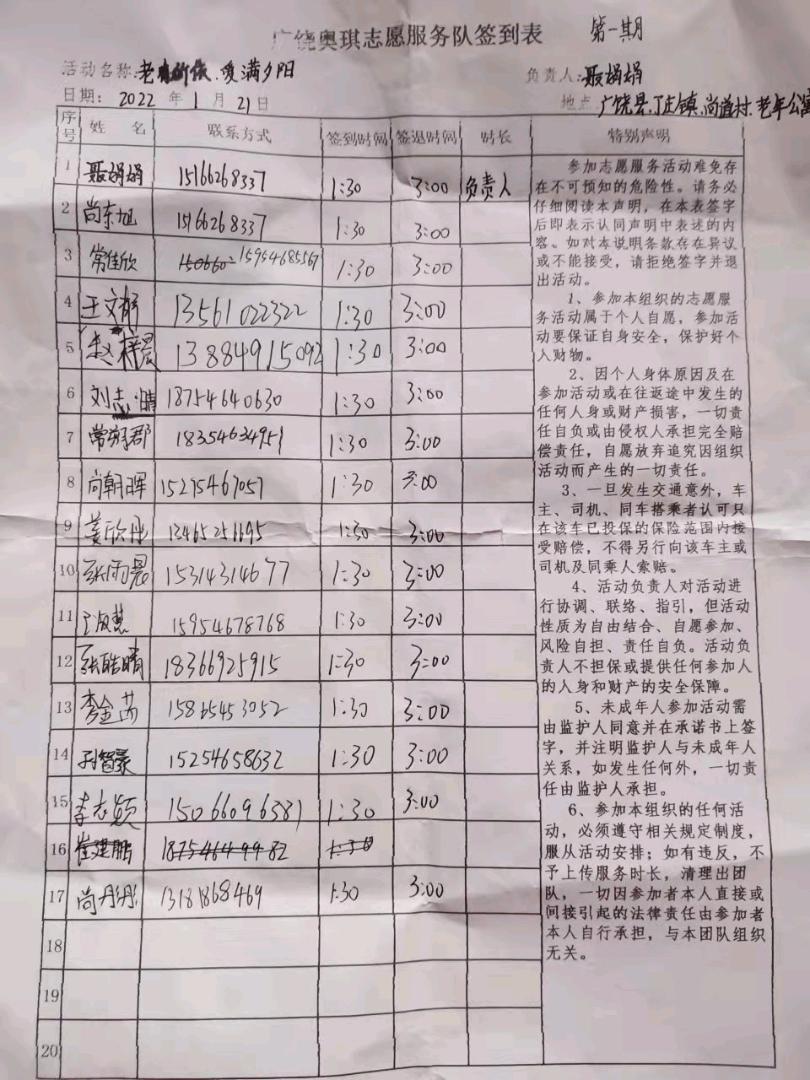 广饶奥琪志愿服务队签到表 第一期
活动名称:老有所依.爱满夕阳 负责人:聂娟娟
日期: 2022 年 1 月 21 日 地点 广饶县.丁庄镇.尚道村.老年公寓
序号 姓 名 联系方式 签到时间 签退时间 时长 特别声明
1 聂娟娟 15166268337 1:30 3:00 负责人
2 尚东旭 15166268337 1:30 3:00
3 常佳欣 15954685567 1:30 3:00
4 王文 13561022322 1:30 3:00
5 赵梓晨 13884915092 1:30 3:00
6 刘志晴 18754640630 1:30 3:00
7 常郡 18354634951 1:30 3:00
8 尚朝晖 15275467057 1:30 3:00
9 姜欣彤 13465251695 1:30 3:00
10 张雨晨 15314314677 1:30 3:00
11 王淑慧 15954678768 1:30 3:00
12 张皓晴 18366925915 1:30 3:00
13 李金芮 15865453052 1:30 3:00
14 孙智豪 15254658632 1:30 3:00
15 李志颖 15066096381 1:30 3:00
16 崔建鹏 18754649982 1:30
17 尚丹彤 13181868469 1:30 3:00
18
19
20
参加志愿服务活动难免存
在不可预知的危险性。请务必
仔细阅读本声明，在本表签字
后即表示认同声明中表述的内
容。如对本说明条款存在异议
或不能接受，请拒绝签字并退
出活动。
1、参加本组织的志愿服
务活动属于个人自愿，参加活
动要保证自身安全，保护好个
人财物。
2、因个人身体原因及在
参加活动或在往返途中发生的
任何人身或财产损害，一切责
任自负或由侵权人承担完全赔
偿责任，自愿放弃追究因组织
活动而产生的一切责任。
3、一旦发生交通意外，车
主、司机、同车搭乘者认可只
在该车已投保的保险范围内接
受赔偿，不得另行向该车主或
司机及同乘人索赔。
4、活动负责人对活动进
行协调、联络、指引，但活动
性质为自由结合、自愿参加、
风险自担、责任自负。活动负
责人不担保或提供任何参加人
的人身和财产的安全保障。
5、未成年人参加活动需
由监护人同意并在承诺书上签
字，并注明监护人与未成年人
关系，如发生任何外，一切责
任由监护人承担。
6、参加本组织的任何活
动，必须遵守相关规定制度，
服从活动安排；如有违反，不
予上传服务时长，清理出团
队，一切因参加者本人直接或
间接引起的法律责任由参加者
本人自行承担，与本团队组织
无关。